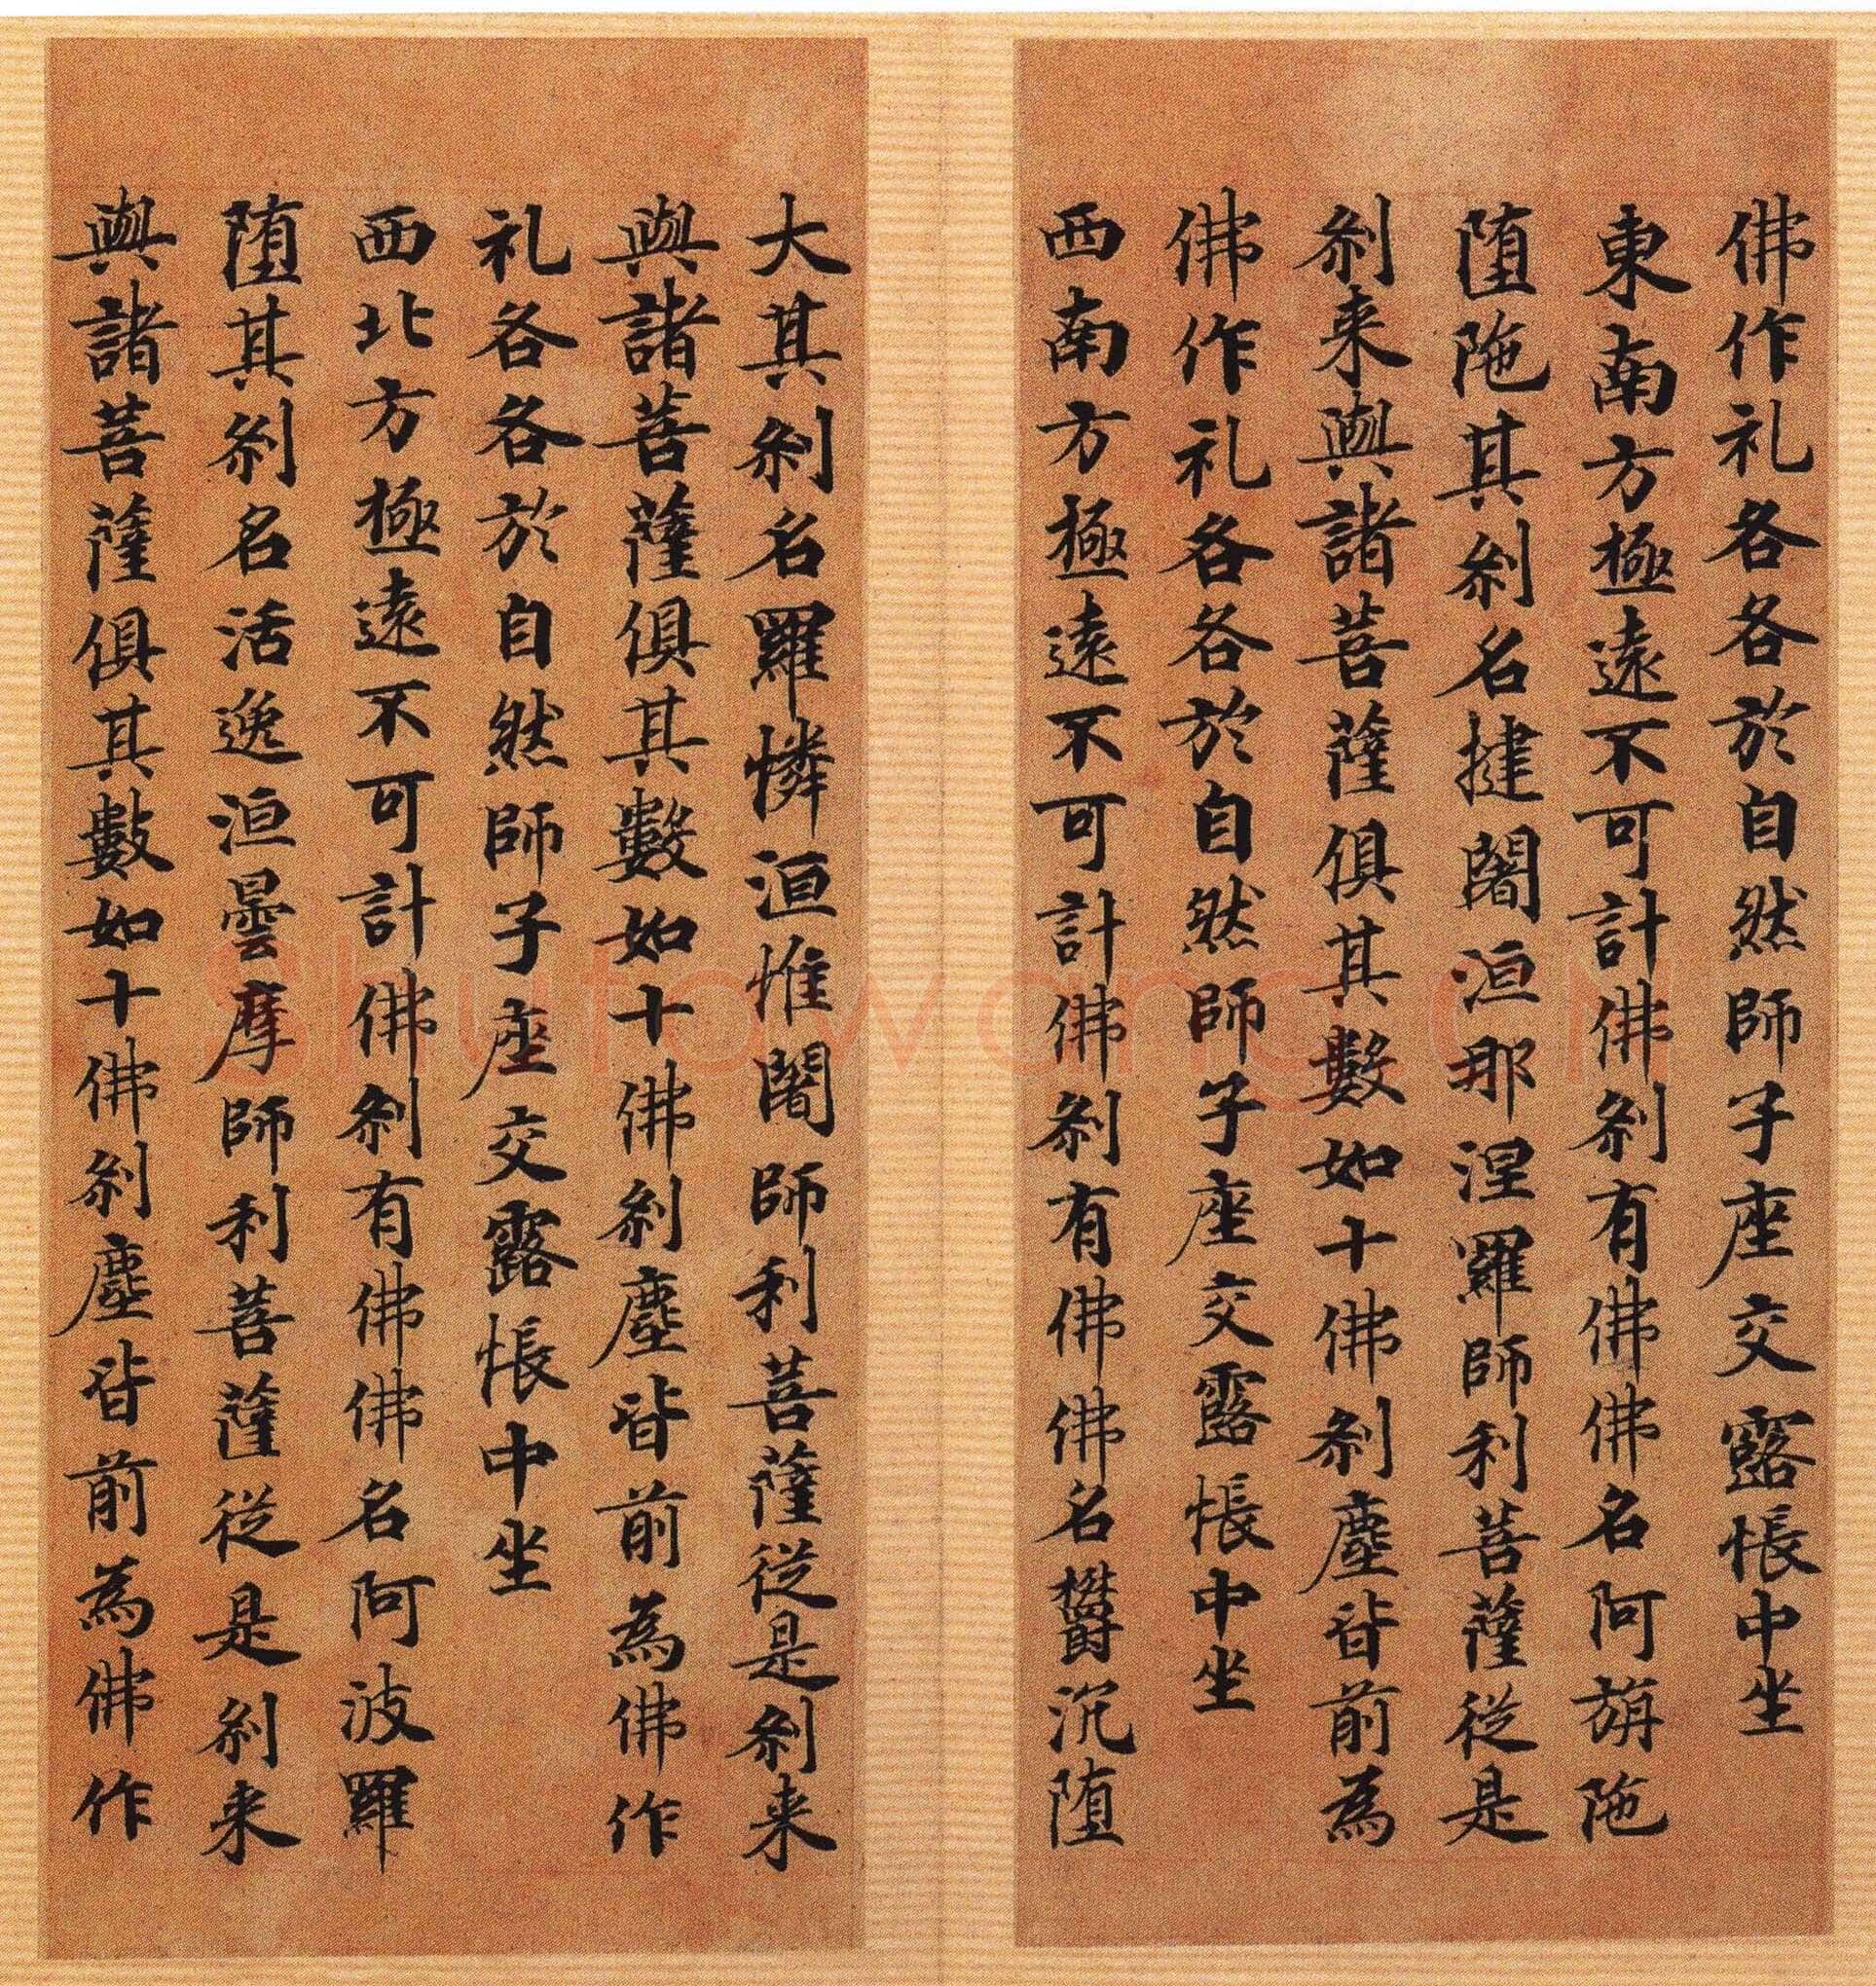 佛作礼各各於自然師子座交露帳中坐
東南方極遠不可計佛刹有佛佛名阿旃陁
堕陁其刹名揵闍洹那涅羅師利菩薩從是
刹来與諸菩薩俱其數如十佛刹塵皆前為
佛作礼各各於自然師子座交露帳中坐
西南方極遠不可計佛刹有佛佛名欝沉堕
大其刹名羅憐洹惟闍師利菩薩從是刹来
與諸菩薩俱其數如十佛刹塵皆前為佛作
礼各各於自然師子座交露帳中坐
西北方極遠不可計佛刹有佛佛名阿波羅
堕其刹名活逸洹曇摩師利菩薩從是刹来
與諸菩薩俱其數如十佛刹塵皆前為佛作